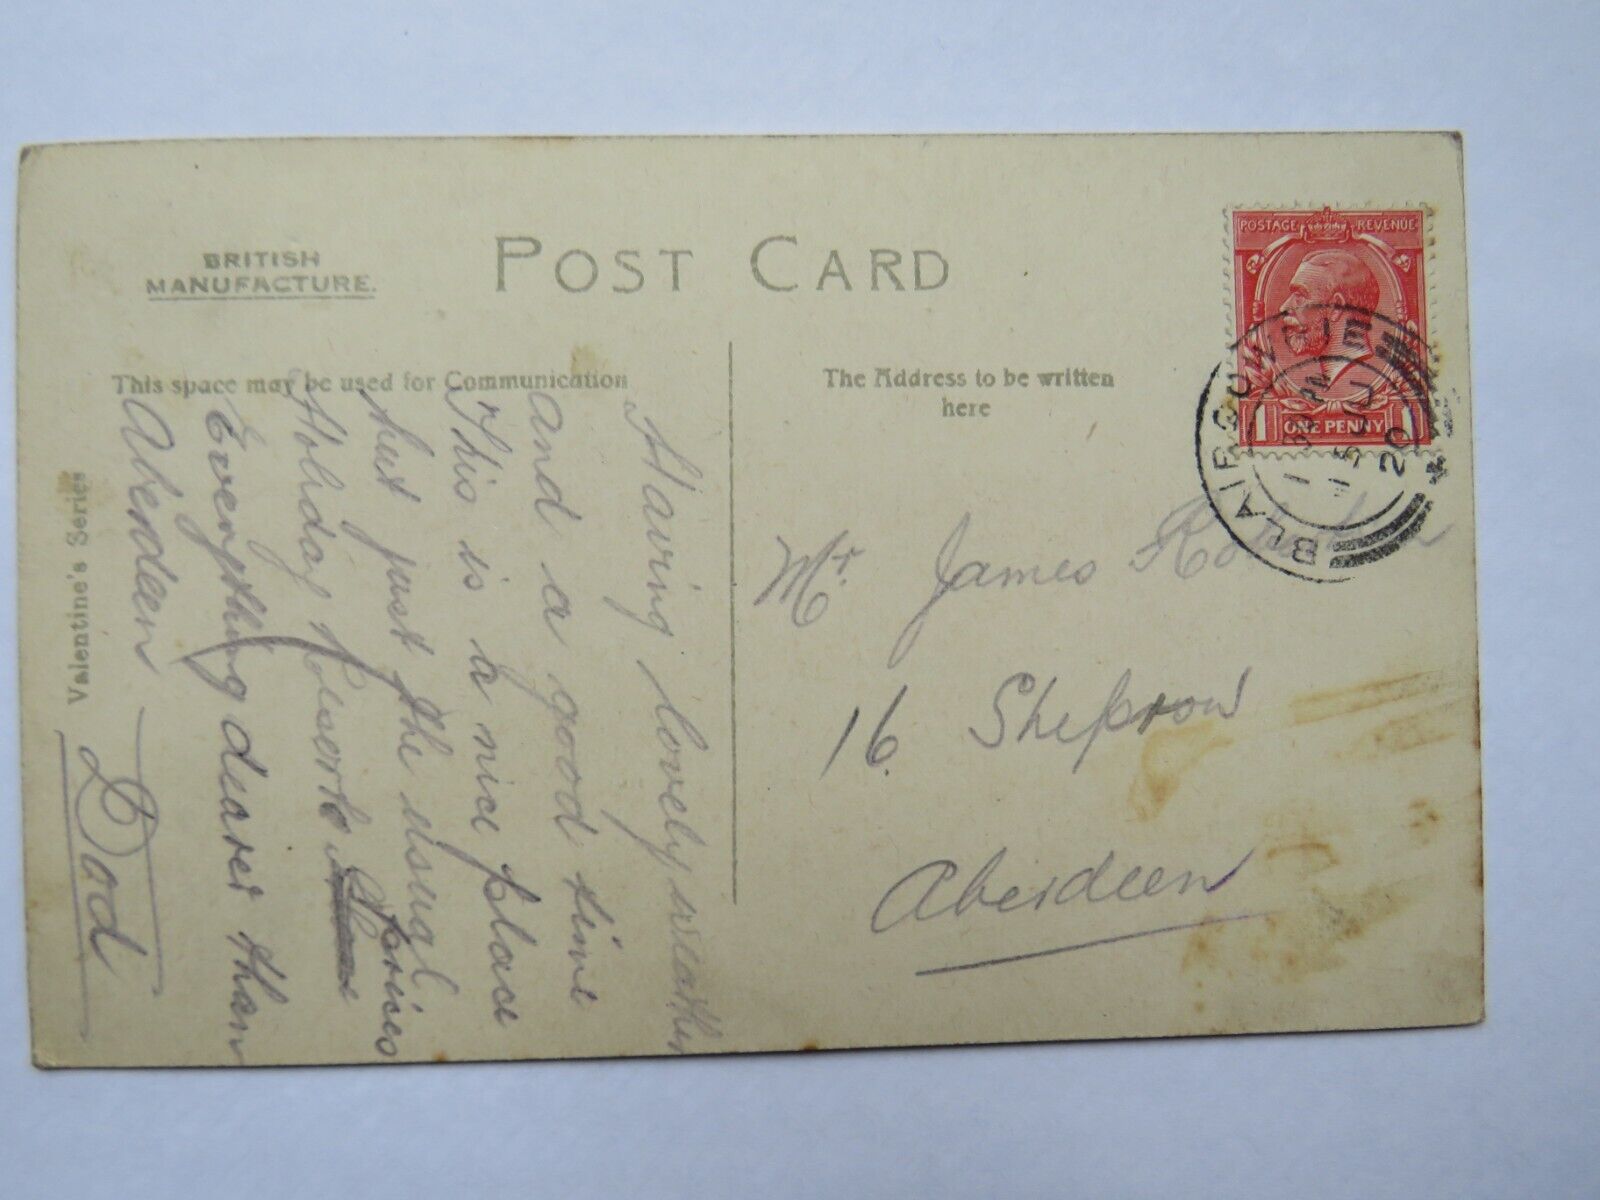 BRITISH
MANUFACTURE.
POST CARD
This space may be used for Communication
The Address to be written
here
Valentine's Series
POSTAGE REVENUE
1 ONE PENNY 1
BLAIRGOWRIE
15 JU
20
Having lovely weather
and a good time
This is a nice place
but just the usual
Holiday Resorte
Prices
Everything dearer than
Aberdeen
Dod
Mr. James
16 Sheprow
Aberdeen